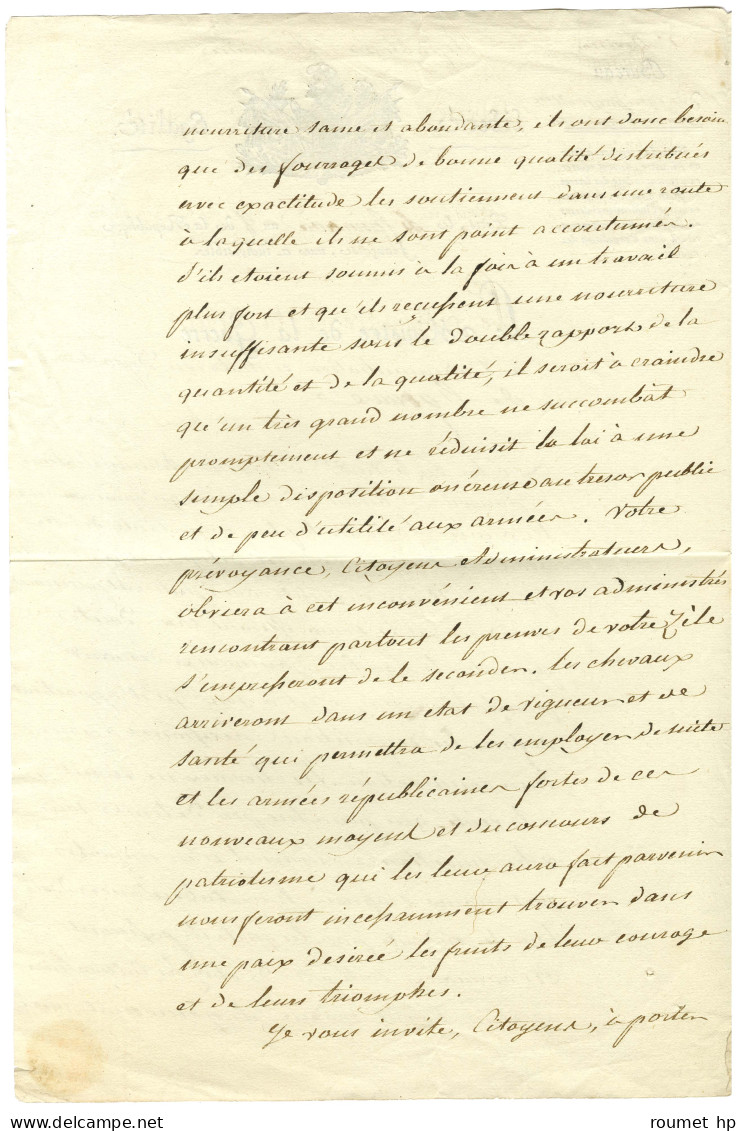 nourriture saine et abondante, ils ont donc besoin
que des fourrages de bonne qualité distribués
avec exactitude les soutiennent dans une route
à laquelle ils ne sont point accoutumés.
S'ils étoient soumis à la fois à un travail
plus fort et qu'ils reçussent une nourriture
insuffisante sous le double rapport de la
quantité et de la qualité, il seroit à craindre
qu'un très grand nombre ne succombât
promptement et ne réduisit la loi à une
simple disposition onéreuse au trésor public
et de peu d'utilité aux armées. Votre
prévoyance, Citoyens Administrateurs,
obviera à cet inconvénient et vos administrés
rencontrant partout les preuves de votre Zèle
s'empresseront de le seconder. les chevaux
arriveront dans un état de vigueur et de
santé qui permettra de les employer de suite
et les armées républicaines fortes de ces
nouveaux moyens et du concours de
patriotisme qui les leur aura fait parvenir
nous feront incessamment trouver dans
une paix désirée les fruits de leur courage
et de leurs triomphes.
Je vous invite, Citoyens, à porter
roumet hp